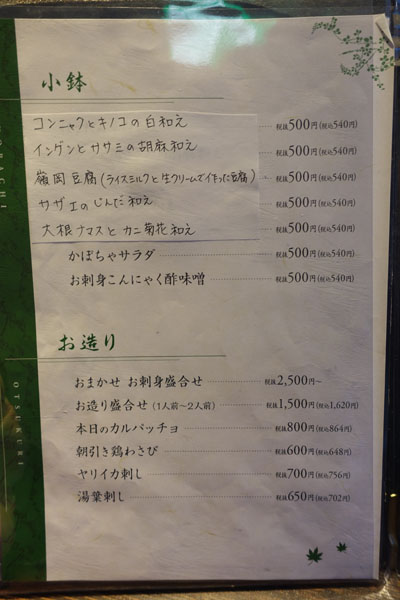 小鉢
コンニャクとキノコの白和え 税抜500円(税込540円)
インゲンとササミの胡麻和え 税抜500円(税込540円)
嶺岡豆腐(ライスミルクと生クリームで作った豆腐) 税抜500円(税込540円)
サザエのじんだ和え 税抜500円(税込540円)
大根ナマスとカニ菊花和え 税抜500円(税込540円)
かぼちゃサラダ 税抜500円(税込540円)
お刺身こんにゃく酢味噌 税抜500円(税込540円)
お造り
おまかせ お刺身盛合せ 税抜2,500円~
お造り盛合せ(1人前~2人前) 税抜1,500円(税込1,620円)
本日のカルパッチョ 税抜800円(税込864円)
朝引き鶏わさび 税抜600円(税込648円)
ヤリイカ刺し 税抜700円(税込756円)
湯葉刺し 税抜650円(税込702円)
KOBACHI
OTSUKURI